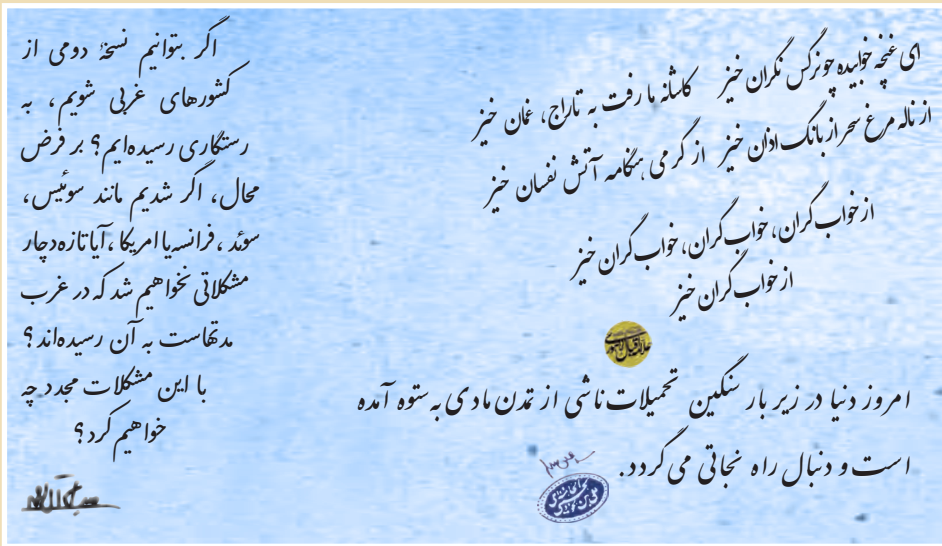 ای غنچه خوابیده چو نرگس نگران خیز کاشانه ما رفت به تاراج، غمان خیز
از ناله مرغ سحر از بانگ اذان خیز از گرمی هنگامه آتش نفسان خیز
از خواب گران، خواب گران، خواب گران خیز
از خواب گران خیز
امروز دنیا در زیر بار سنگین تحمیلات ناشی از تمدن مادی به ستوه آمده
است و دنبال راه نجاتی می گردد.
اگر بتوانیم نسخهٔ دومی از
کشورهای غربی شویم، به
رستگاری رسیده‌ایم؟ بر فرض
محال، اگر شدیم مانند سوئیس،
سوئد، فرانسه یا امریکا، آیا تازه دچار
مشکلاتی نخواهیم شد که در غرب
مدتهاست به آن رسیده‌اند؟
با این مشکلات مجدد چه
خواهیم کرد؟